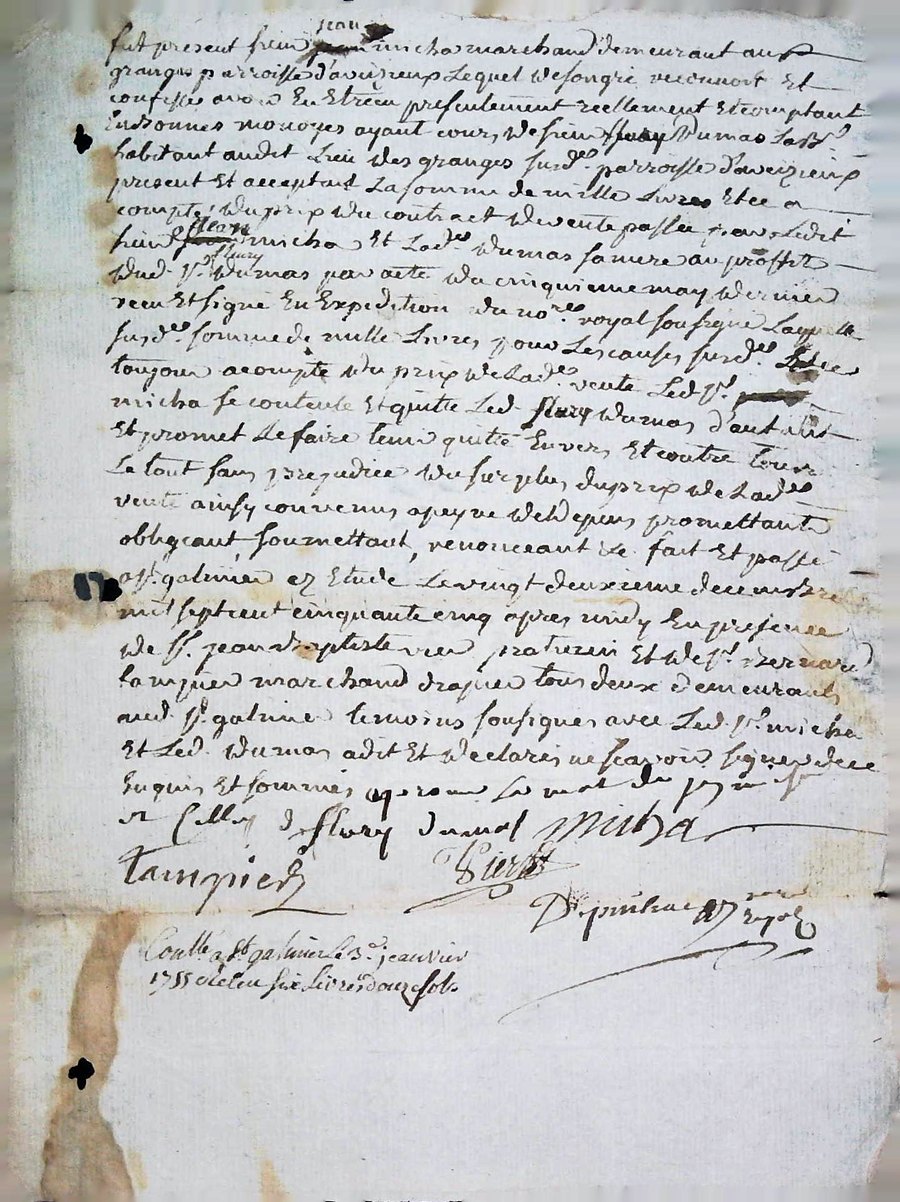 jean
fut present sieur micha marchand demeurant aux
granges parroisse d'aveizieux Lequel de son gré reconnoit Et
confesse avoir Eu Et receu presentement reellement Et comptant
En bonnes monoyes ayant cours, de sieur fleury Dumas
habitant audit Lieu des granges susd.e parroisse d'aveizieux
present Et acceptant La somme de mille Livres Et ce a
compte du prix du contract de vente passée par Ledit
jean
sieur micha Et Lad.e Dumas sa mere au proffit
fleury
dud. s.r Dumas par acte du cinquieme may dernier
receu Et signé En Expedition du no.re royal soussigné Laquelle
susd.e somme de mille Livres pour Les causes susd.es
toujour acompte du prix de Lad.e vente Led. s.r
micha se contente Et quitte Led. fleury dumas d'autant
Et promet Le faire tenir quitte Envers Et contre tous
Le tout sans prejudice du surplus du prix de Lad.e
vente ainsy convenus a peyne de Depens promettant
obligeant soumettant, renonceant &c fait Et passé
a s.t galmier ez Etude Le vingt deuxieme decembre
mil sept cent cinquante cinq apres midy En presence
de s.r jean Baptiste praticien Et de s.r Bernard
marchand drapier tous deux demeurants
aud. s.t galmier temoins soussignes avec Led. s.r micha
Et Led. Dumas a dit Et declaré ne scavoir signer de ce
Enquis Et sommés approuvé Le mot de jean
et Celluy de fleury dumas Micha
tampier
Contllé a St galmier Le 3.e jeanvier
1755 receu six Livres douze sols